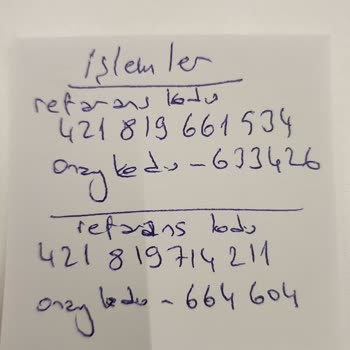 işlemler
referans kodu
421 819 661 534
onay kodu - 633426
referans kodu
421 819714 211
onay kodu - 664 604